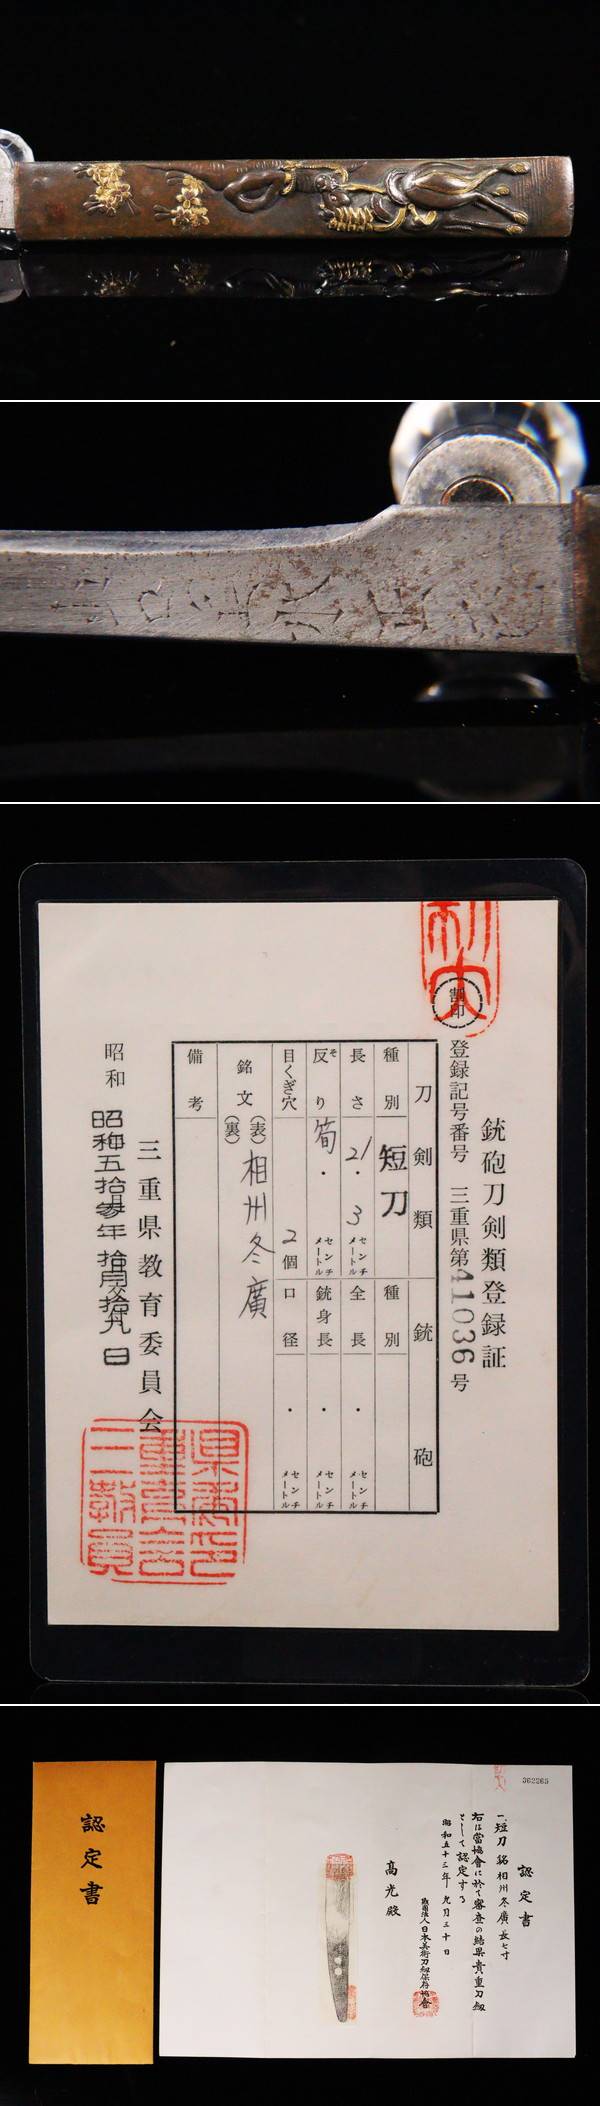 割印
銃砲刀剣類登録証
登録記号番号 三重県第41036号
刀剣類
種別 短刀
長さ 21.3 センチメートル
反り 筍. センチメートル
目くぎ穴 2個
銘文 (表) 相州冬廣
(裏)
備考
銃砲
種別
全長 . センチメートル
銃身長 . センチメートル
口径 . センチメートル
昭和 昭和五拾参年
日
三重県教育委員会
認定書
362265
認定書
一、短刀 銘相州冬廣 長七寸
右は當協會に於て審査の結果貴重刀剣
として認定する
昭和五十三年 九月三十日
財団法人日本美術刀剣保存協會
高光殿